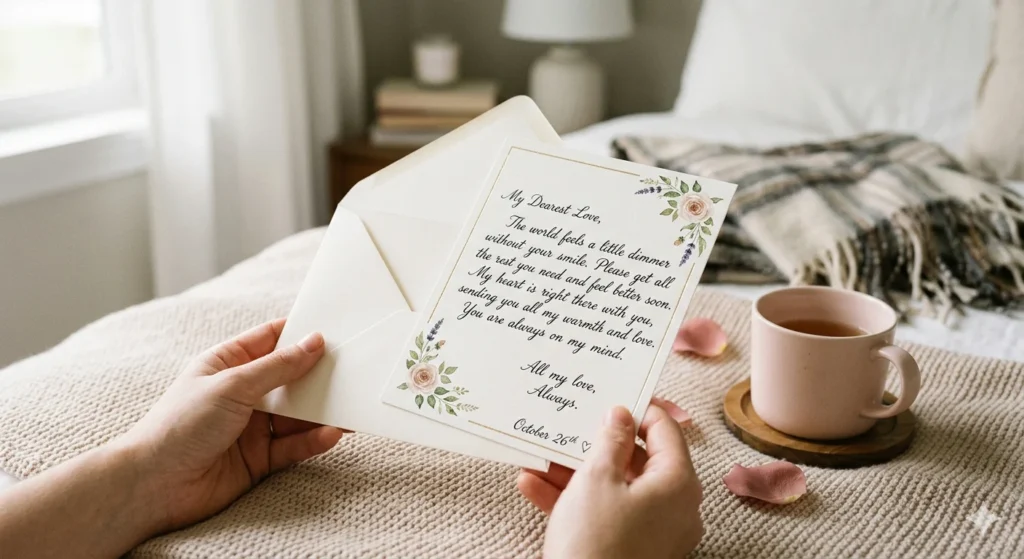 My Dearest Love,
The world feels a little dimmer
without your smile. Please get all
the rest you need and feel better soon.
My heart is right there with you,
sending you all my warmth and love.
You are always on my mind.
All my love,
Always.
October 26th ♡